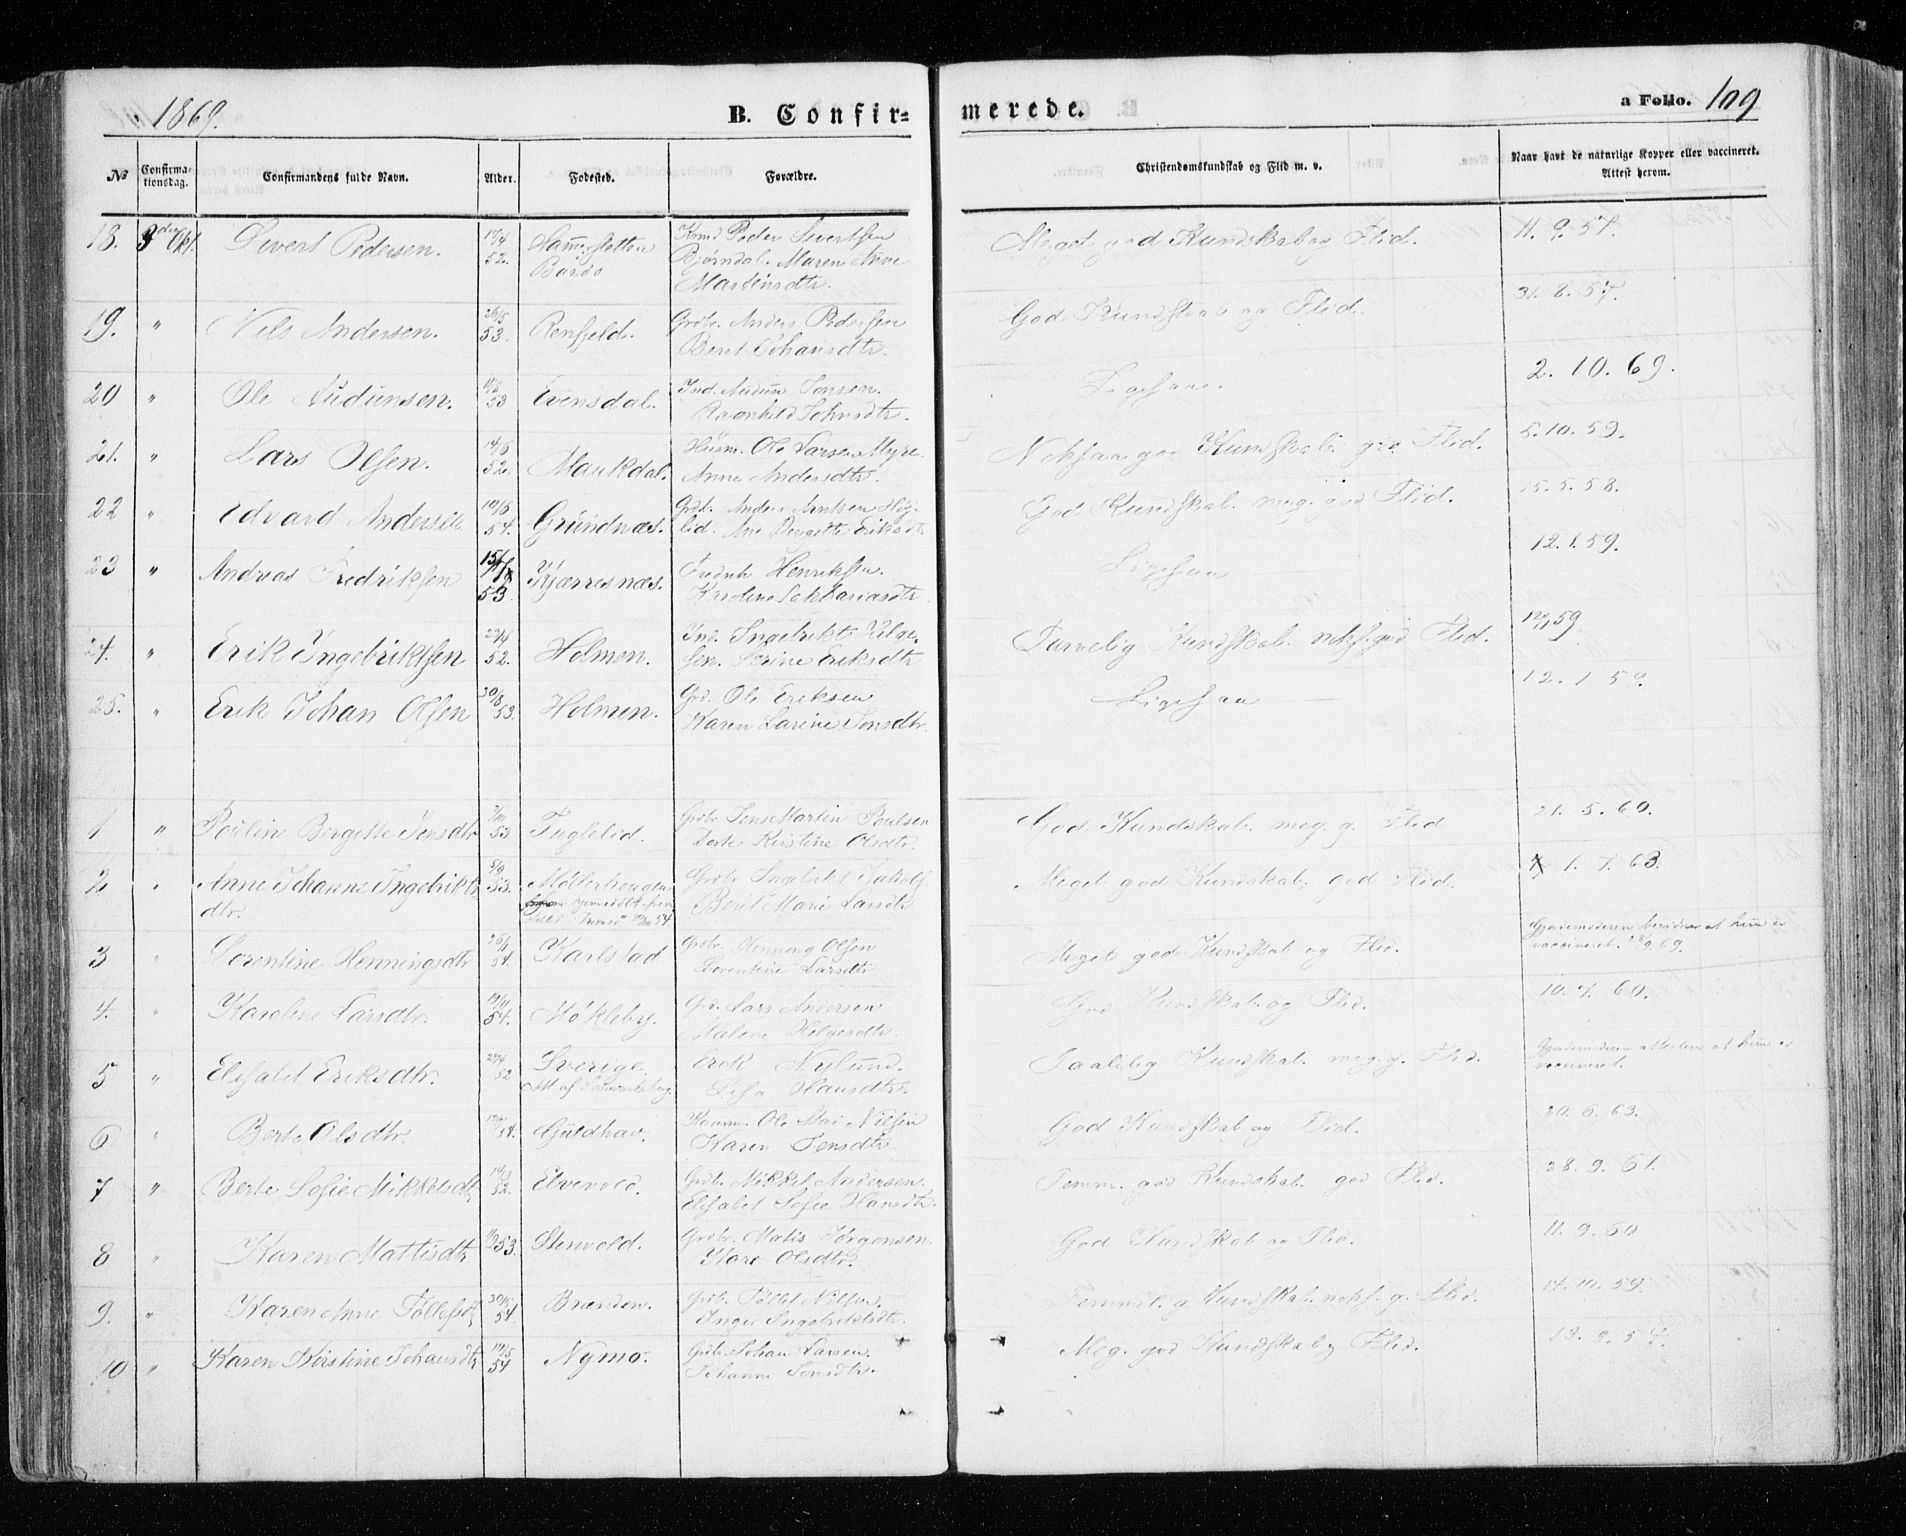 1869.
B. Confir=
merede.
a Folio. 109
No
Confirma-
tionsdag.
Confirmandens fulde Navn.
Alder.
Fødested.
Forældre.
Christendomskundskab og Flid m. v.
Naar havt de naturlige Kopper eller vaccineret.
Attest herom.
18. 3die Okt. Sivert Pedersen. 52. Bardo Peder Sivertsen
Bjørndal. Maren Anne
Martinsdtr. Meget god Kundskab og Flid. 11. 9. 54.
19. " Nils Andersen. 26/5 53. Renfjeld. Grdbr. Anders Pedersen
Beret Johansdtr. God Kundskab og Flid. 31. 8. 57.
20 " Ole Audunsen. 53 Evensdal. Ind. Audun Jonsen.
Ragnhild Johnsdtr. Ligesaa. 2. 10. 69.
21. " Lars Olsen. 14/6 52. Maukdal. Husm. Ole Larsen Myre.
Anne Andersdtr. Noksaa god Kundskab. god Flid. 5. 10. 59.
22 " Edvard Andersen 19/6 54. Grundnæs. Grdb. Anders Arntsen Høg-
lid. Ane Bergitte Eriksdtr. God Kundskab. meg. god Flid. 15. 5. 58.
23 " Andreas Fredriksen 53. Kjærresnæs. Fredrik Henriksen.
Karoline Sakkariasdtr. Ligesaa 12. 1. 59.
24. " Erik Ingebriktsen 29/4 52. Holmen. Ind. Ingebrikt Helge-
sen. Serine Eriksdtr Tarvelig Kundskab. noks. god Flid. 12/1 59
25. " Erik Johan Olsen 30/8 53. Holmen. Grd. Ole Eriksen
Karen Larine Jonsdtr. Ligesaa 12. 1. 59.
1 " Pauline Bergitte Jensdtr 53 Fuglelid. Grdbr Jens Martin Paulsen
Dorte Kirstine Olsdtr. God Kundskab. meg. g. Flid 21. 5. 60.
2 " Anne Johanne Ingebrikts-
dtr. 8/9 53. Møllerhaugen Grdbr Ingebrikt Jakobs.
Beret Marie Larsdtr Meget god Kundskab. god Flid. 1. 7. 63.
3 " Lorentine Henningsdtr 54. Karlstad Grdbr. Henning Olsen
Lorentine Larsdtr Meget god Kundskab og Flid. Gjordemoderen bevidner at hun er
vaccineret. 69.
4. " Karoline Larsdtr. 19/11 54. Møkleby. Grd. Lars Andersen
Malene Helgesdtr. God Kundskab. og Flid. 10. 7. 60.
5 " Elisabet Eriksdtr. 29/4 52 Sverige. Erik Nylund.
Lisa Hansdtr. Taalelig Kundskab. meg. g. Flid. Gjordemoderen attesterer at hun er
vaccineret.
6 " Berte Olsdtr. 54. Guldhav. Ole Nilsen
Karen Jensdtr God Kundskab og Flid. 20. 6. 63.
7 " Berte Sofie Mikkelsdtr 52. Elvevold. Grdb. Mikkel Andersen.
Elisabet Sofie Hansdtr. Temm. god Kundskab. god Flid. 28. 9. 61.
8 " Karen Mattisdtr 53. Stenvold. Grdbr. Matis Jørgensen.
Mare Olsdtr. God Kundskab og Flid. 11. 9. 60
9. " Karen Anne Tollefsdtr 54. Brænden. Grdb. Tollef Nilsen.
Inger Ingebriktsdtr. Temmel. g. Kundskab. noks. g. Flid. 14. 10. 59.
10 " Karen Kirstine Johansdtr 19/5 54 Nymo. Grdb. Johan Larsen.
Johanne Jensdtr. Meg. god Kundskab og Flid. 13. 9. 57.